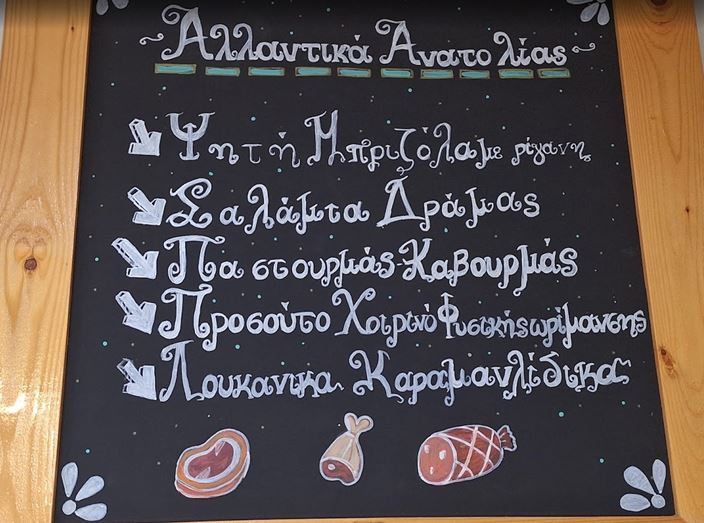 ~Αλλαντικά Ανατολίας~
Ψητή Μπριζόλα με ρίγανη
Σαλάμια Δράμας
Παστουρμάς-Καβουρμάς
Προσούτο Χοιρινό Φυσικής ωρίμανσης
Λουκανικα Καραμανλίδικα